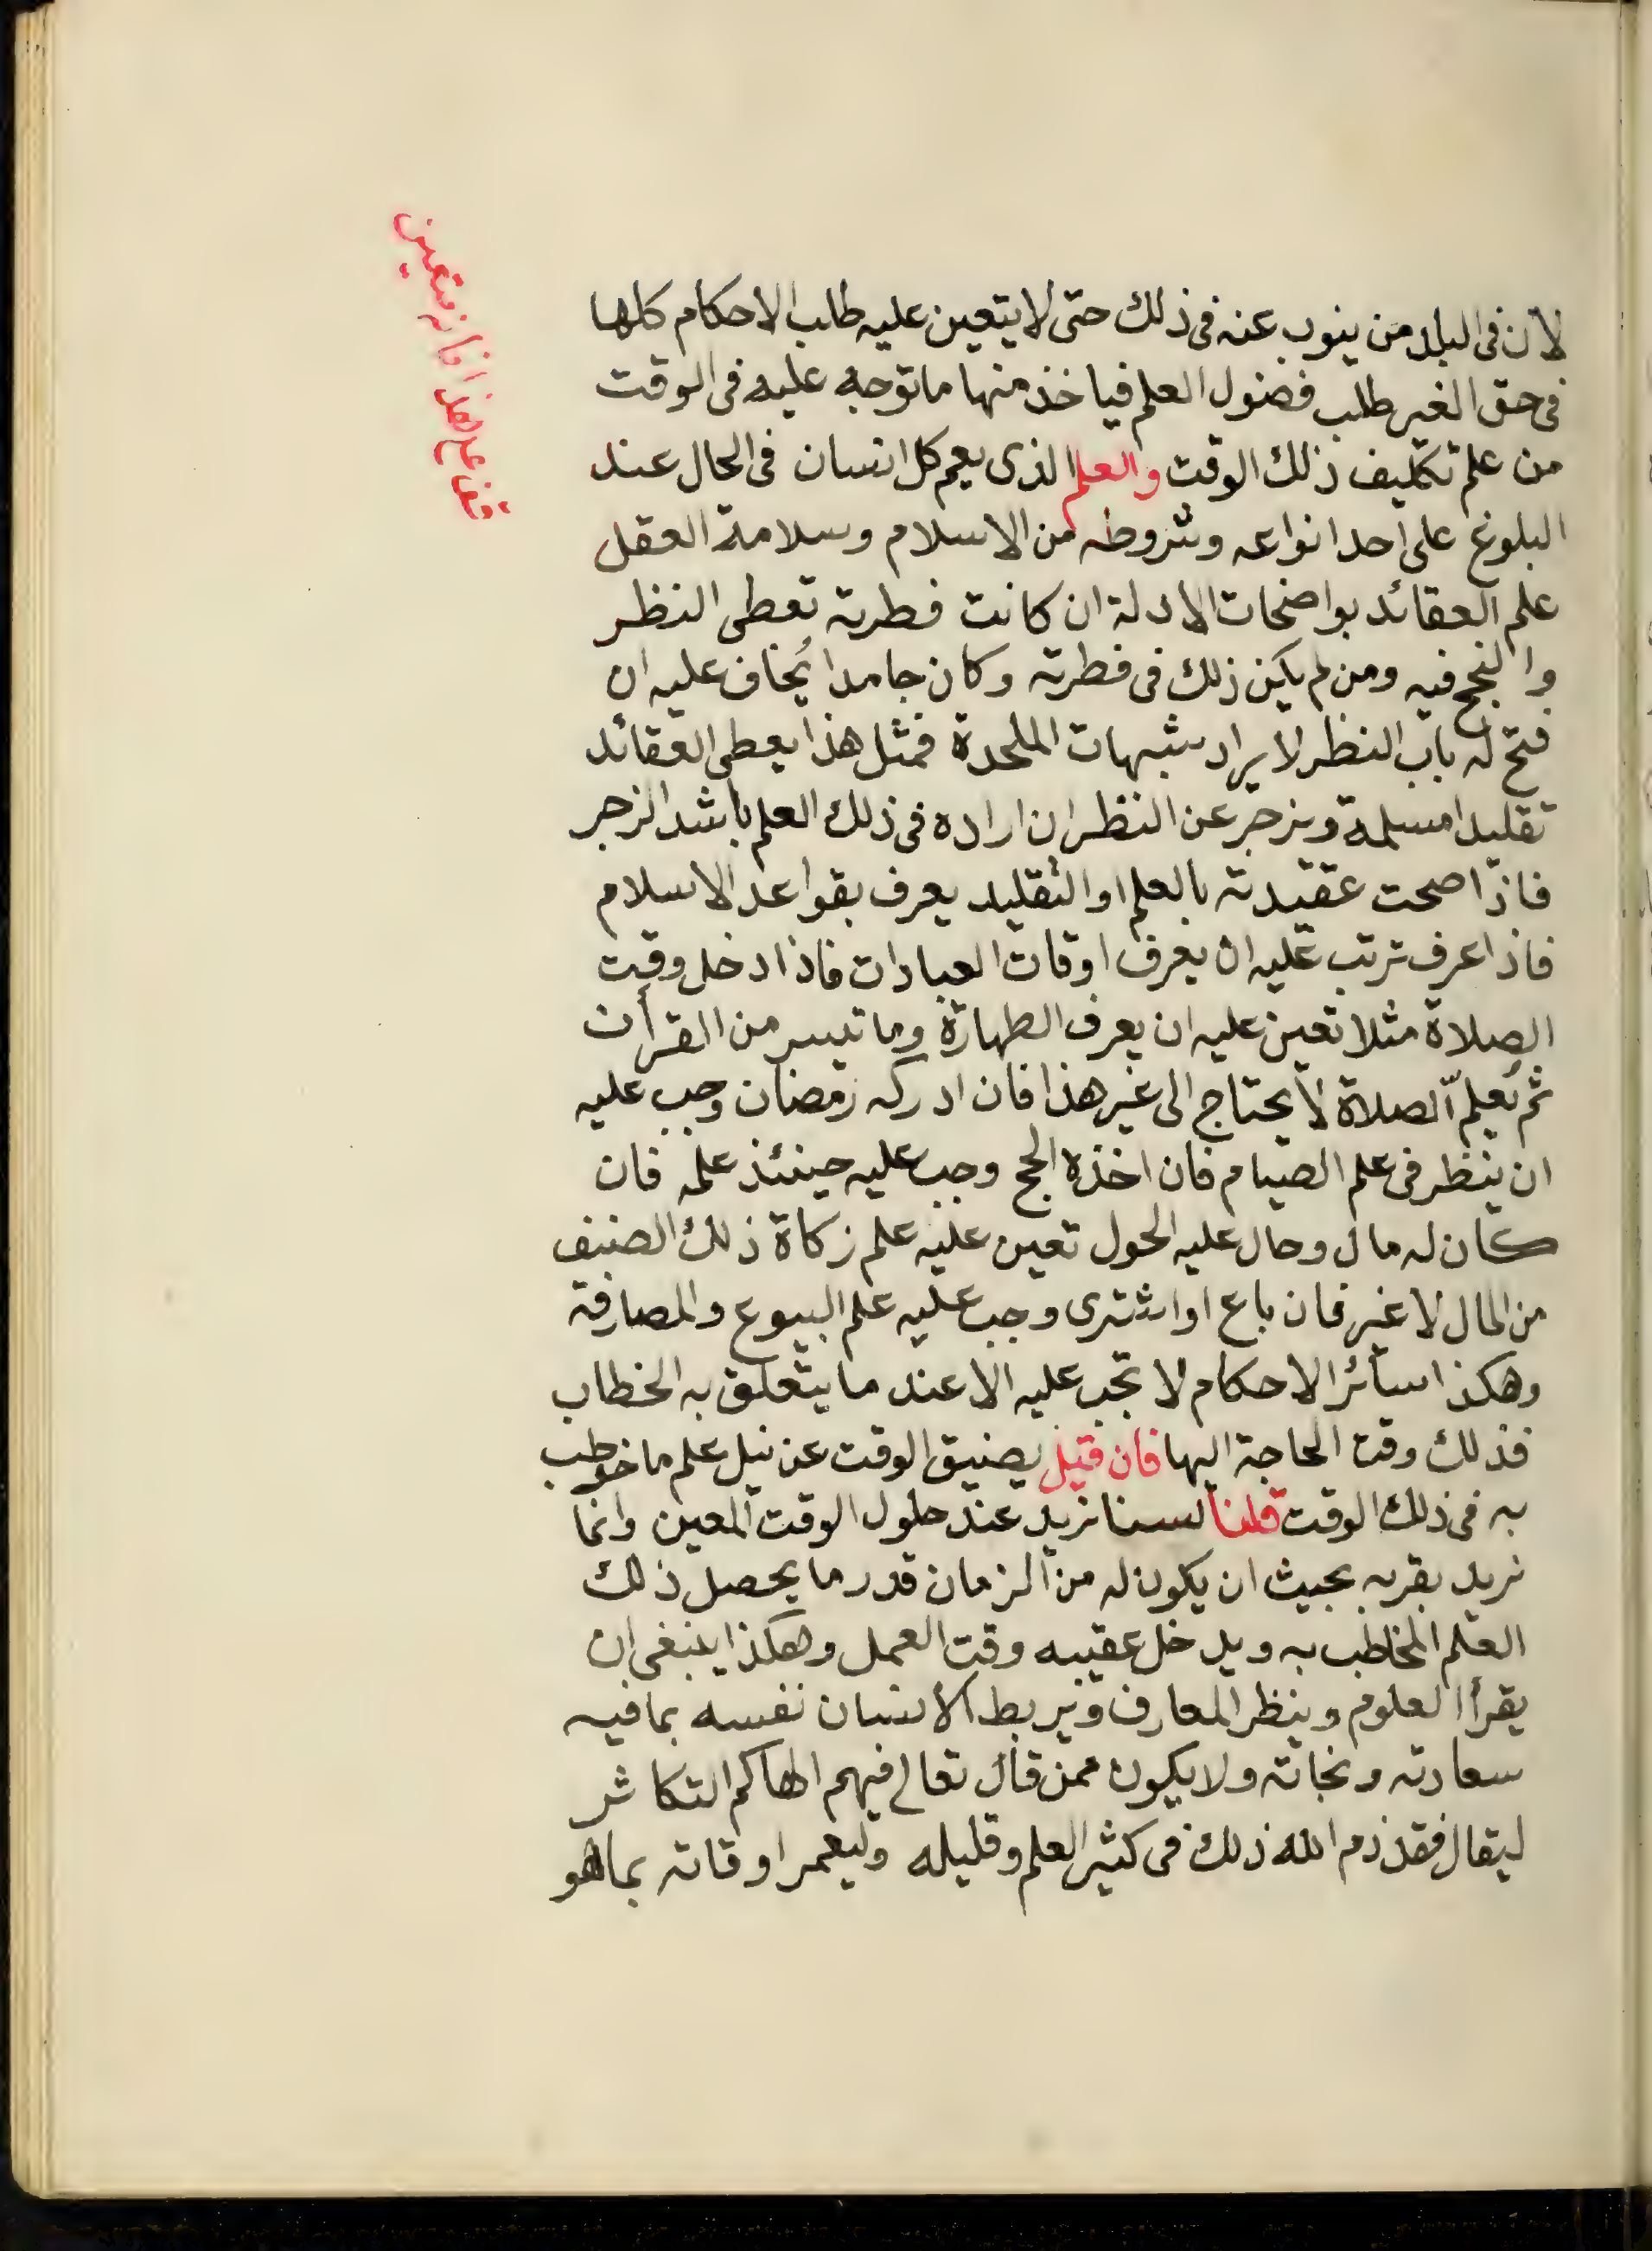 لان فى البلد من ينوب عنه فى ذلك حتى لا يتعين عليه طلب الاحكام كلها
فى حق الغير طلب فضول العلم فياخذ منها ما توجه عليه فى الوقت
من علم تكليف ذلك الوقت والعلم الذى يعم كل انسان فى الحال عند
البلوغ على احد انواعه وشروطه من الاسلام وسلامة العقل
علم العقائد بواضحات الادلة ان كانت فطرته تعطى النظر
والنجح فيه ومن لم يكن ذلك فى فطرته وكان جامدا يُخاف عليه ان
فتح له باب النظر لايراد شبهات الملحدة فمثل هذا يعطى العقائد
تقليدا مسلمة ويزجر عن النظر ان اراده فى ذلك العلم باشد الزجر
فاذا صحت عقيدته بالعلم او التقليد يعرف بقواعد الاسلام
فاذا عرف ترتب عليه ان يعرف اوقات العبادات فاذا دخل وقت
الصلاة مثلا تعين عليه ان يعرف الطهارة وما تيسر من القرأن
ثم يعلم الصلاة لا يحتاج الى غير هذا فان ادركه رمضان وجب عليه
ان ينظر فى علم الصيام فان اخذه الحج وجب عليه حينئذ علمه فان
كان له مال وحال عليه الحول تعين عليه علم زكاة ذلك الصنف
من المال لا غير فان باع او اشترى وجب عليه علم البيوع والمصارفة
وهكذا سائر الاحكام لا تجب عليه الا عند ما يتعلق به الخطاب
فذلك وقت الحاجة اليها فان قيل يضيق الوقت عن نيل علم ما خوطب
به فى ذلك الوقت قلنا لسنا نريد عند حلول الوقت المعين وانما
نريد بقربه بحيث ان يكون له من الزمان قدر ما يحصل ذلك
العلم المخاطب به ويدخل عقيبه وقت العمل وهكذا ينبغى ان
يقرأ العلوم وينظر المعارف ويربط الانسان نفسه بما فيه
سعادته ونجاته ولا يكون ممن قال تعالى فيهم الهاكم التكاثر
ليقال فقد ذم الله ذلك فى كثير العلم وقليله وليعمر اوقاته بما هو
قف على هذا فانه متعين